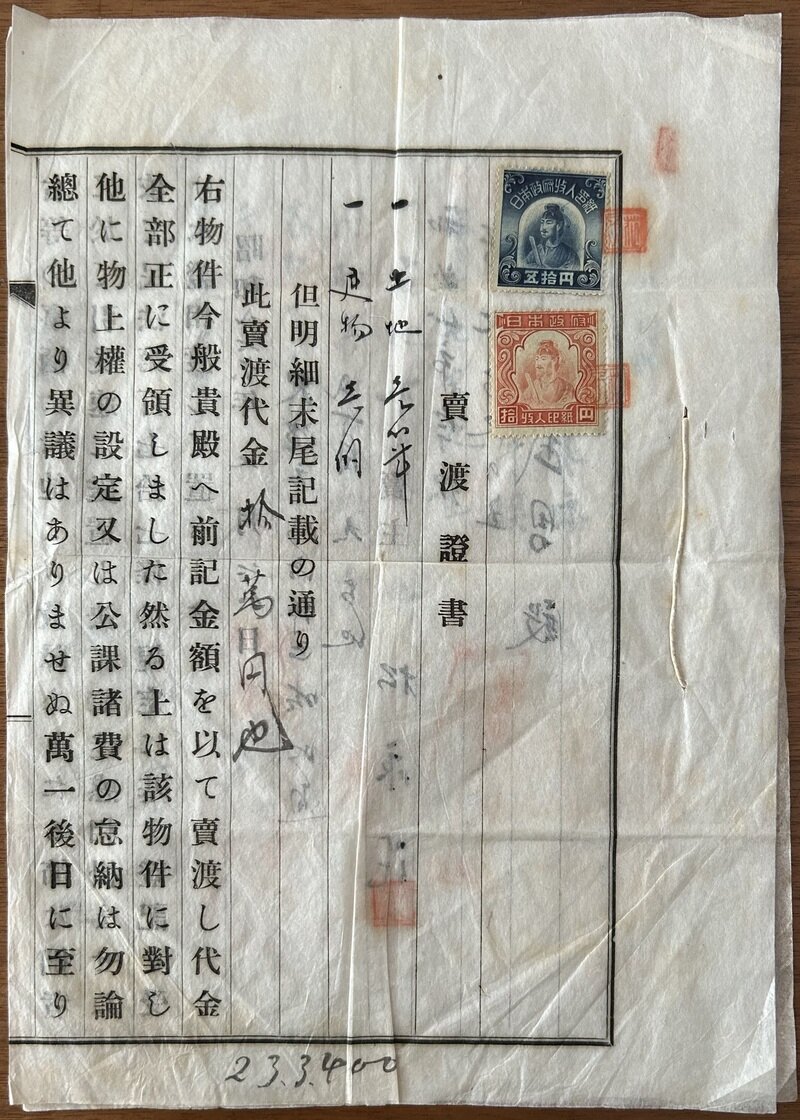 日本政府收入印紙
五拾円
日本政府
拾収入印紙円
賣渡證書
一 土地 壱筆
一 建物 壱個
但明細末尾記載の通り
此賣渡代金 拾萬円也
右物件今般貴殿へ前記金額を以て賣渡し代金
全部正に受領しました然る上は該物件に對し
他に物上權の設定又は公課諸費の怠納は勿論
總て他より異議はありませぬ萬一後日に至り
23.3.400